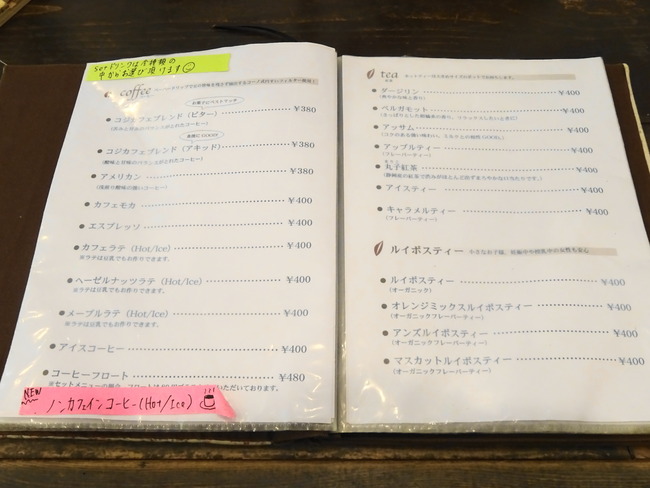 setドリンクは全種類の
中からお選び頂けます
coffee
お菓子にベストマッチ
コジカフェブレンド（ビター） ¥380
食後に GOOD!
コジカフェブレンド（アキッド） ¥380
（酸味と甘味のバランスがとれたコーヒー）
アメリカン ¥400
（浅煎り酸味の強いコーヒー）
カフェモカ ¥400
エスプレッソ ¥400
カフェラテ（Hot/Ice） ¥400
※ラテは豆乳でもお作りできます。
ヘーゼルナッツラテ（Hot/Ice） ¥400
※ラテは豆乳でもお作りできます。
メープルラテ（Hot/Ice） ¥400
※ラテは豆乳でもお作りできます。
アイスコーヒー ¥400
コーヒーフロート ¥480
NEW
ノンカフェインコーヒー（Hot/Ice）
tea
紅茶
ダージリン ¥400
（爽やかな味と香り）
ベルガモット ¥400
アッサム ¥400
アップルティー ¥400
（フレーバーティー）
丸子紅茶 ¥400
アイスティー ¥400
キャラメルティー ¥400
（フレーバーティー）
ルイボスティー 小さなお子様、妊娠中や授乳中の女性も安心
ルイボスティー ¥400
（オーガニック）
オレンジミックスルイボスティー ¥400
（オーガニックフレーバーティー）
アンズルイボスティー ¥400
（オーガニックフレーバーティー）
マスカットルイボスティー ¥400
（オーガニックフレーバーティー）